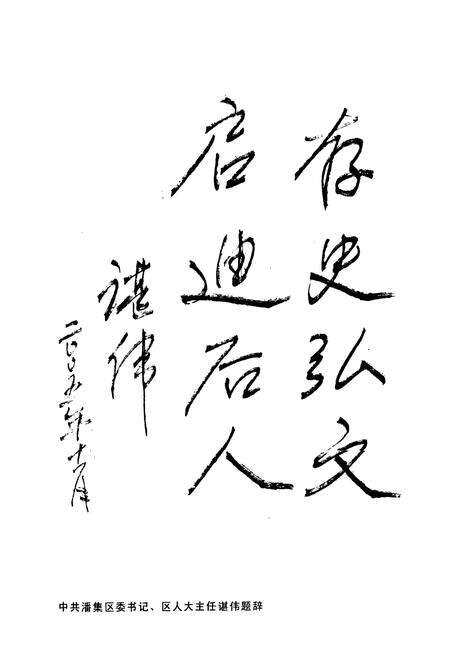 存史弘文
启迪后人
谌伟
二〇〇五年十一月
中共潘集区委书记、区人大主任谌伟题辞